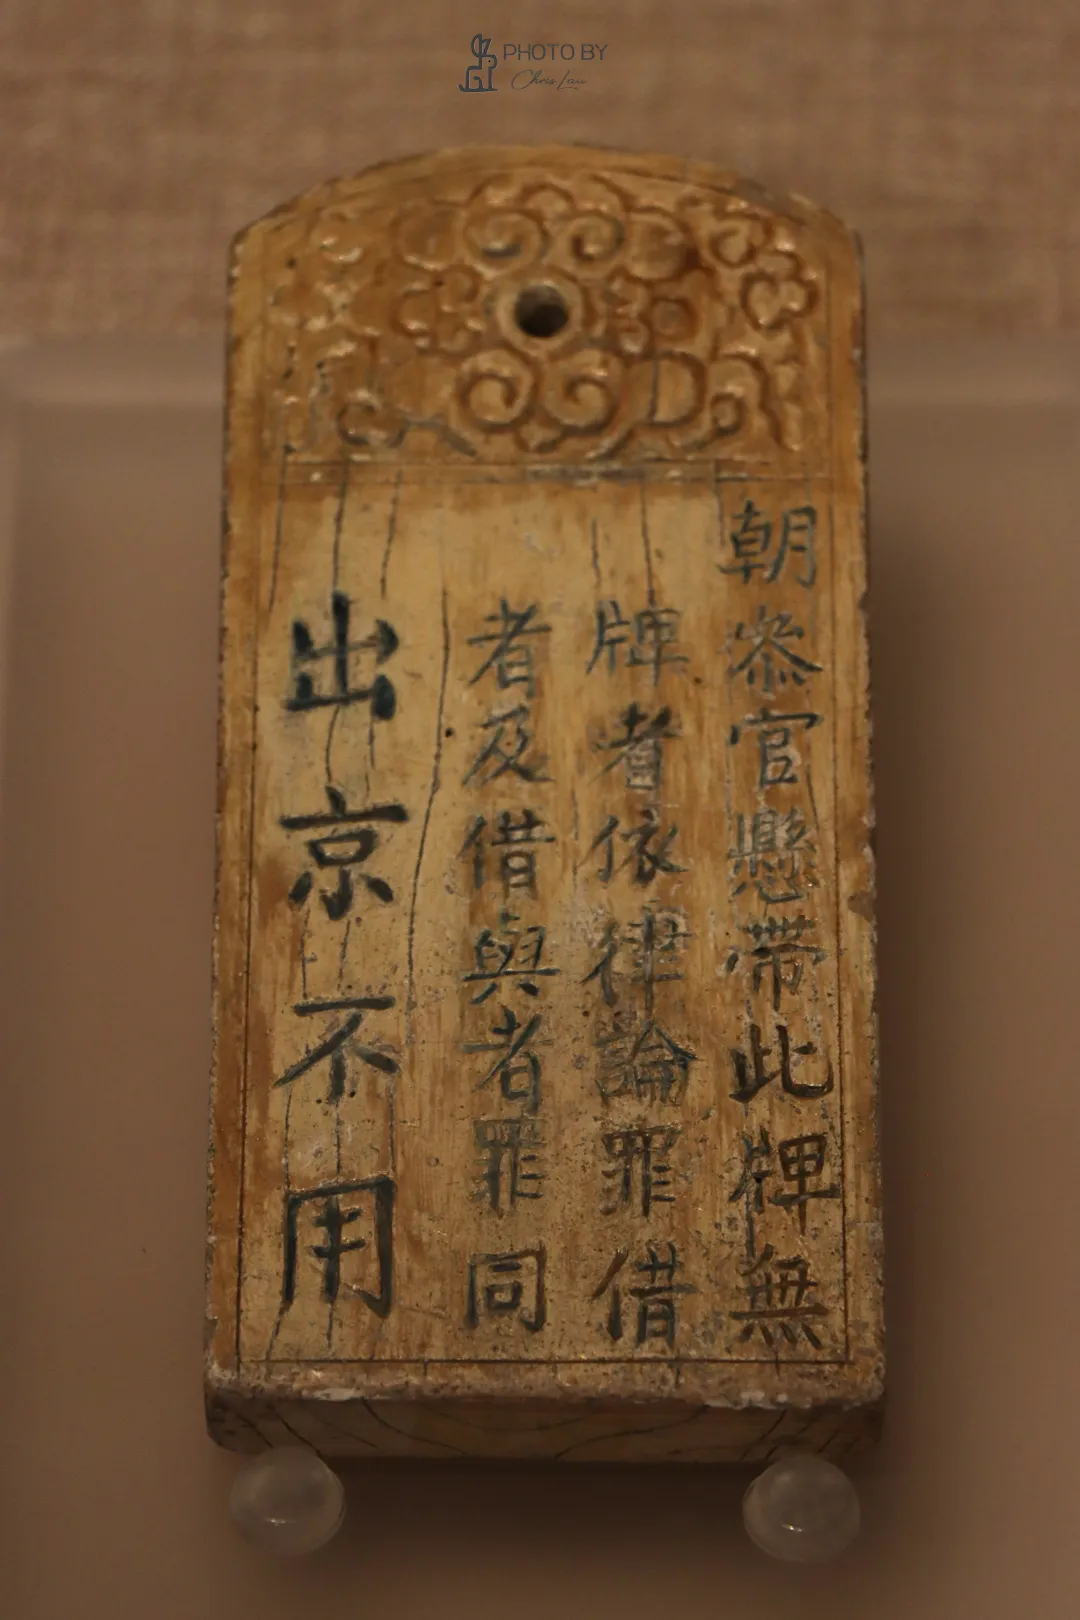 PHOTO BY
Chris Lau
朝叅官懸帶此牌無
牌者依律論罪借
者及借與者罪同
出京不用